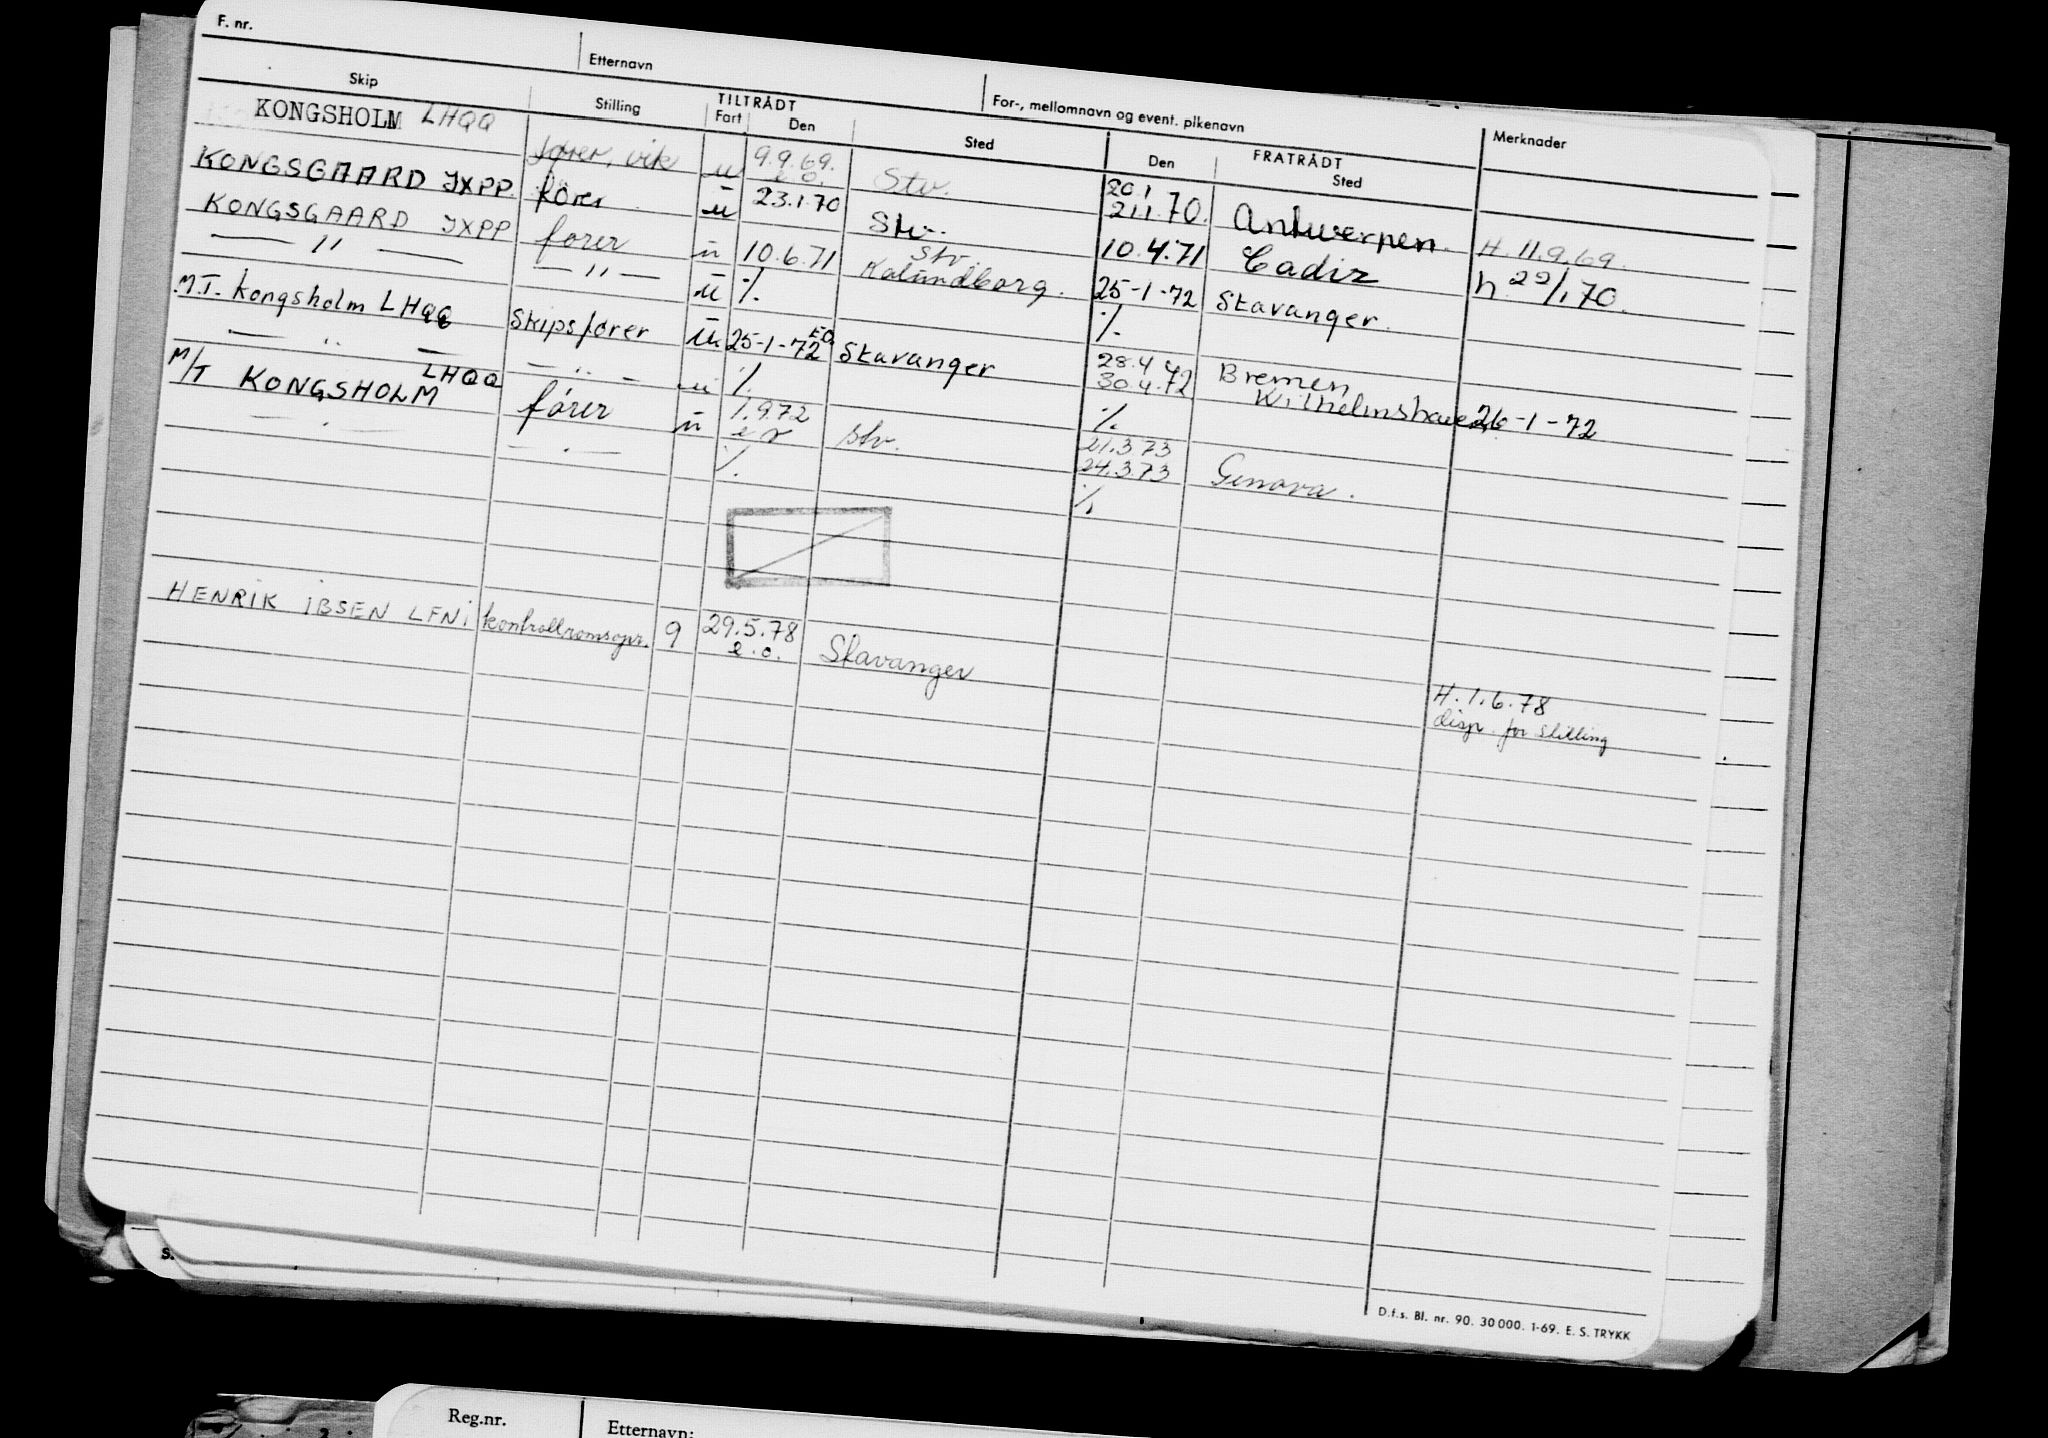 F. nr.
Etternavn
For-, mellomnavn og event. pikenavn
Merknader
Skip
Stilling
TILTRÅDT
Fart
Den
Sted
FRATRÅDT
Den
Sted
KONGSHOLM LHQQ fører, vik u 9.9.69. e.o. Stv. 20.1 21.1.70. Antwerpen. H. 11.9.69.
KONGSGAARD JXPP. fører u 23.1.70 Stv. 10.4.71 Cadiz h 22/1 70.
KONGSGAARD JXPP fører u 10.6.71 Stv Kalundborg. 25-1-72 Stavanger.
— " — — " — u %. %.
M.T. Kongsholm LHQQ Skipsfører u 25-1-72 EO Stavanger 28.4 30.4.72 Bremen, Wilhelmshaven 26-1-72
— " — — " — u %. %.
M/T KONGSHOLM LHQQ fører u 1.9.72 Stv. 21.3.73 24.3.73 Genova.
— " — — " — %. %.
HENRIK IBSEN LFNI kontrollromsopr. 9 29.5.78 e.o. Stavanger H. 1.6.78
disp. for stilling
D.f.s. Bl. nr. 90. 30 000. 1-69. E. S. TRYKK
S.
Reg.nr.
Etternavn: